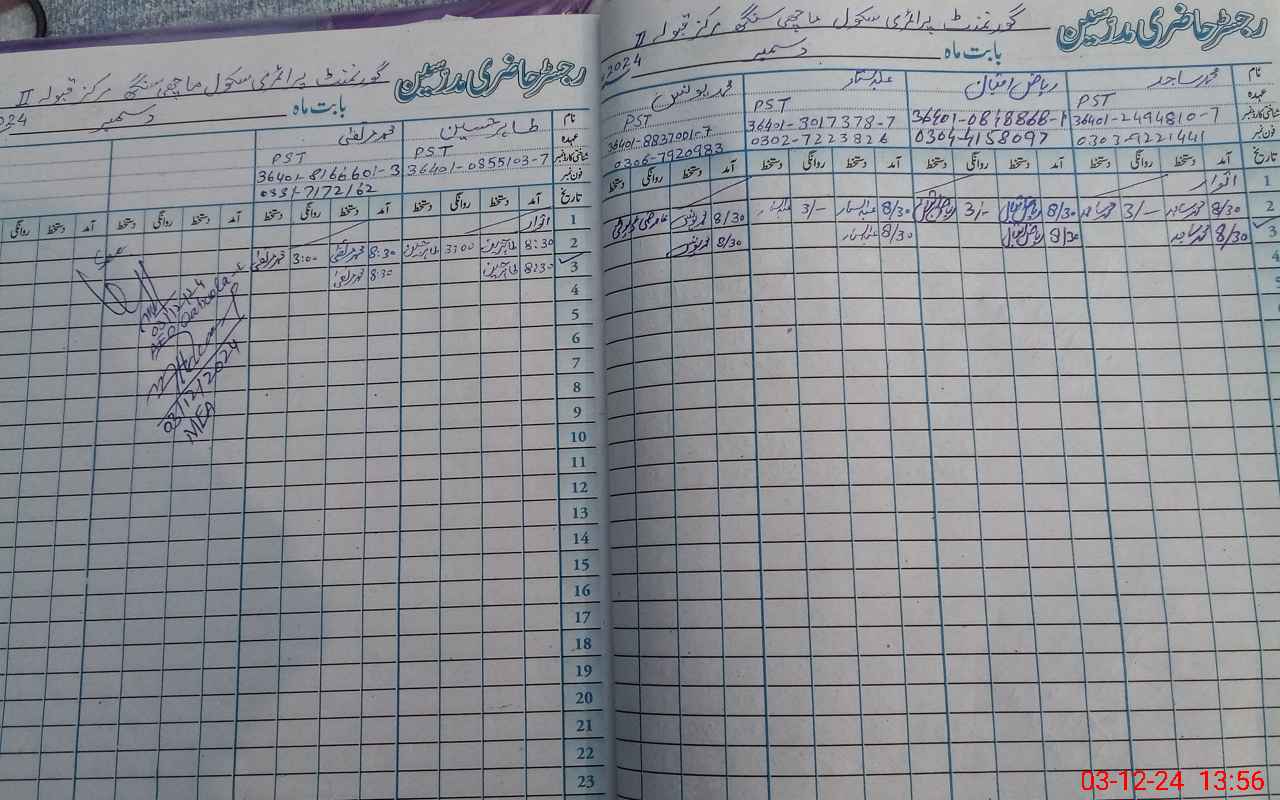 رجسٹر حاضری مدرسین
گورنمنٹ پرائمری سکول ماچھی سنگھ مرکز قبولہ II
بابت ماہ دسمبر 2024
نام محمد ساجد ریاض اقبال عبدالستار محمد یونس
عہدہ PST PST PST
شناختی کارڈ نمبر 36401-2494810-7 36401-0848868-1 36401-3017378-7 36401-8837001-7
فون نمبر 0303-9221441 0304-4158097 0302-7223826 0306-7920983
تاریخ آمد دستخط روانگی دستخط آمد دستخط روانگی دستخط آمد دستخط روانگی دستخط آمد دستخط روانگی دستخط
1 اتوار
2 8/30 محمد ساجد 3/- محمد ساجد 8/30 ریاض اقبال 3/- ریاض اقبال 8/30 عبدالستار 3/- عبدالستار 8/30 محمد یونس
3 8/30 محمد ساجد 8/30 ریاض اقبال 8/30 عبدالستار 8/30 محمد یونس
4
5
رجسٹر حاضری مدرسین
گورنمنٹ پرائمری سکول ماچھی سنگھ مرکز قبولہ II
بابت ماہ دسمبر 024
نام طاہر حسین محمد مرتضیٰ
عہدہ PST PST
شناختی کارڈ نمبر 36401-0855103-7 36401-8166601-3
فون نمبر 0331-7172162
تاریخ آمد دستخط روانگی دستخط آمد دستخط روانگی دستخط آمد دستخط روانگی دستخط آمد دستخط روانگی
1 اتوار
2 8:30 طاہر حسین 3:00 طاہر حسین 8:30 محمد مرتضیٰ 3:00 محمد مرتضیٰ
3 8:30 طاہر حسین 8:30 محمد مرتضیٰ
4
5
6
7
8
9
10
11
12
13
14
15
16
17
18
19
20
21
22
23
03/12/24
AEO Qaboola
03/12/2024
MEA
03-12-24 13:56